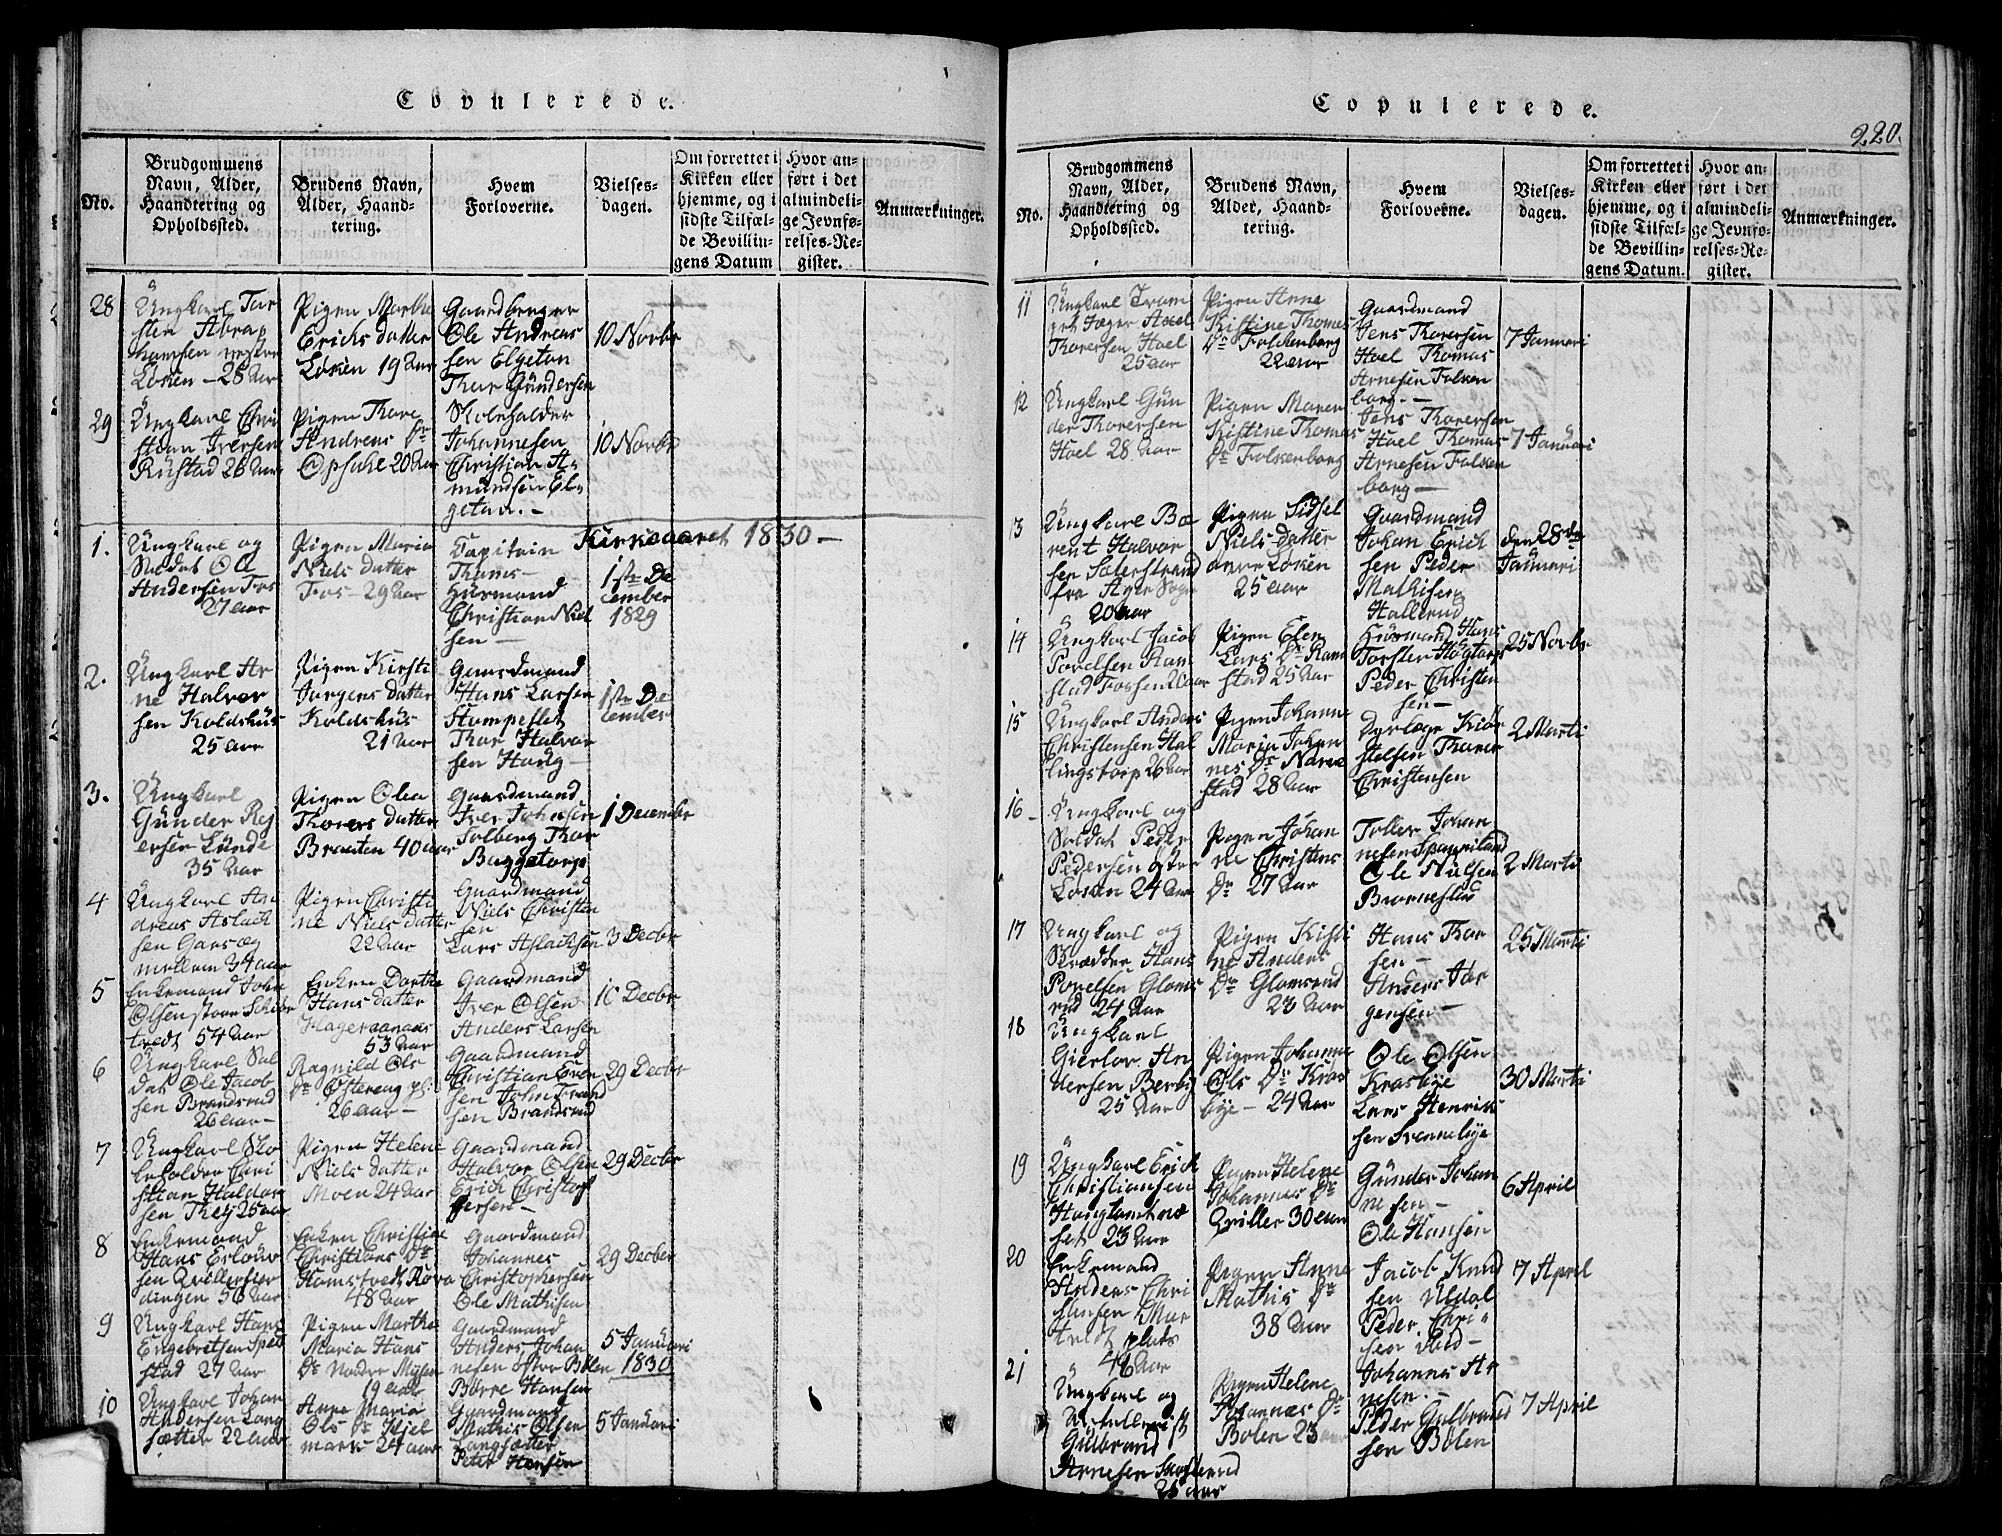 Copulerede.
No.
Brudgommens
Navn, Alder,
Haandtering og
Opholdssted.
Brudens Navn,
Alder, Haand-
tering.
Hvem
Forloverne.
Vielses-
dagen.
Om forrettet i
Kirken eller
hjemme, og i
sidste Tilfæl-
de Bevillin-
gens Datum
Hvor an-
ført i det
almindeli-
ge Jevnfø-
relses-Re-
gister.
Anmærkninger.
28
Ungkarl Tor
sten Abra
hamsen
Løken - 28 Aar
Pigen Marthe
Erichs datter
Løken 19 Aar
Gaardbruger
Ole Andreas
sen Elgetan
Thor Gündersen
10 Novbr
29
Ungkarl Chri
stian Iversen
Rustad 26 Aar
Pigen Thore
Andreas Dr
Opsahl 20 Aar
Skoleholder
Johannesen
Christian A-
mundsen El-
getan. -
10 Novbr
Kirkeaaret 1830 -
1.
Ungkarl og
Soldat Ole
Andersen Fos
27 aar
Pigen Maria
Niels datter
Fos - 29 Aar
Capitain
Thams -
Husmand
Christian Niel
sen -
1ste De
cember
1829
2.
Ungkarl Ar
ne Halvor
sen Koldshus
25 aar
Pigen Kirsti
Jørgens datter
Koldshus
21 Aar
Gaardmand
Hans Larsen
Stumpeslet
Thor Halvor
sen Haug -
1ste De
cember
3.
Ungkarl
Günder Rej
ersen Lunde
35 Aar
Pigen Olea
Thorers datter
Braaten 40 aar
Gaardmand
Iver Johnsen
Solberg Thor
Buggetorp
1 December
4
Ungkarl An
dreas Aslach
sen Garsæg
mellem 34 aar
Pigen Christi
ne Niels datter
22 Aar
Gaardmand
Niels Christen
sen
Lars Aslachsen
3 Decbr
5
Enkemand John
Olsen store
54 Aar
Enken Dorthe
Hans datter
53 Aar
Gaardmand
Iver Olsen
Anders Larsen
10 Decbr
6
Ungkarl Sol
dat Ole Jacob
sen Brandsrud
26 aar -
Ragnild Ols
Dr Østereng pl:
26 aar -
Gaardmand
Christian Even
sen John
sen Brandsrud
29 Decbr
7
Ungkarl Sko
leholder Chri
stian Haldor
sen Thej 25 aar
Pigen Helene
Niels datter
Moen 24 aar
Gaardmand
Halvor Olsen
Erich Christof
fersen -
29 Decbr
8
Enkemand
Hans
sen
dingen 56 Aar
Enken Christine
Christians Dr
48 Aar
Gaardmand
Johannes
Christophersen
Ole Mathisen
29 Decbr
9
Ungkarl Hans
Engebretsen
stad 27 Aar
Pigen Marthe
Maria Hans
Dr Nodre Mysen
19 aar
Gaardmand
Anders Johan
nesen østre Bølen
Børre Hansen
5 Januari
1830
10
Ungkarl Johan
Andersen Lang
sætter 22 aar
Anne Maria
Ols Dr Hjel
mark 24 aar
Gaardmand
Mathis Olsen
Langsætter
Peter Hansen
5 Januari
Copulerede.
220.
No.
Brudgommens
Navn, Alder,
Haandtering og
Opholdssted.
Brudens Navn,
Alder, Haand-
tering.
Hvem
Forloverne.
Vielses-
dagen.
Om forrettet i
Kirken eller
hjemme, og i
sidste Tilfæl-
de Bevillin-
gens Datum.
Hvor an-
ført i det
almindeli-
ge Jevnfø-
relses-Re-
gister.
Anmærkninger.
11
Ungkarl Trom
pet Jæger Axel
Thorersen Hoel
25 aar
Pigen Anne
Kistine Thomas
Dr Folckenborg
22 aar
Gaardmand
Jens Thorersen
Hoel Thomas
Arnesen Folken
borg. -
7 Januari
12
Ungkarl Gün
der Thorersen
Hoel 28 Aar
Pigen Maren
Kistine Thomas
Dr Folkenborg
Jens Thorersen
Hoel Thomas
Arnesen Folken
borg -
7 Januari
13
Ungkarl Be
rent Halvor
sen Solerstrand
fra Agre Sogn
20 aar
Pigen Sidsel
Niels datter
Løken
25 aar
Gaardmand
Johan Erich
sen Peder
Mathisen
Hallerud
den 28de
Januari
14
Ungkarl Jacob
Povelsen Ram
stad Fossen 20 aar
Pigen Elen
Lars Dr Ram
stad 25 Aar
Husmand Hans
Torsten Høgtorp
Peder Christen
sen -
25 Novbr
15
Ungkarl Anders
Christensen Hal
lingstorp 26 Aar
Pigen Johanne
Maria Johan
nes Dr Nare
stad 28 Aar
Dyrlæge Kiør
stelsen Thorer
Christensen
2 Marti
16 -
Ungkarl og
Soldat Peder
Pedersen østre
Løken 24 Aar
Pigen Johan
ne Christens
Dr 27 Aar
Toller Johan
nesen
Ole Nielsen
Brørnestad
2 Marti
17
Ungkarl og
Skrædder Hans
Povelsen Gloms
rud 24 Aar
Pigen Kisti
ne Anders
Dr Glomsrud
23 Aar
Hans Thor
sen -
Anders Jør
gensen -
25 Marti
18
Ungkarl
Gierlov An
dersen Berby
25 Aar
Pigen Johanne
Ols Dr Kras
bye - 24 Aar
Ole Olsen
Krasbye
Lars Henrik
sen Svennebye
30 Marti
19
Ungkarl Erich
Christiansen
Haugtomtnæ
set 23 Aar
Pigen Helene
Johannes Dr
Qviller 30 aar
Günder Johan
nesen -
Ole Hansen
6 April
20
Enkemand
Anders Chri
stiansen Mar
tvedt plads
46 Aar
Pigen Anne
Mathis Dr
38 Aar
Jacob Knud
sen Udal
Peder Chri-
sen -
7 April
21
Ungkarl og
Gulbrand
Arnesen
26 aar
Pigen Helene
Johannes Dr
Bølen 23 aar
Johannes Ar
nesen. -
Peder Gulbrand
sen Bølen
7 April